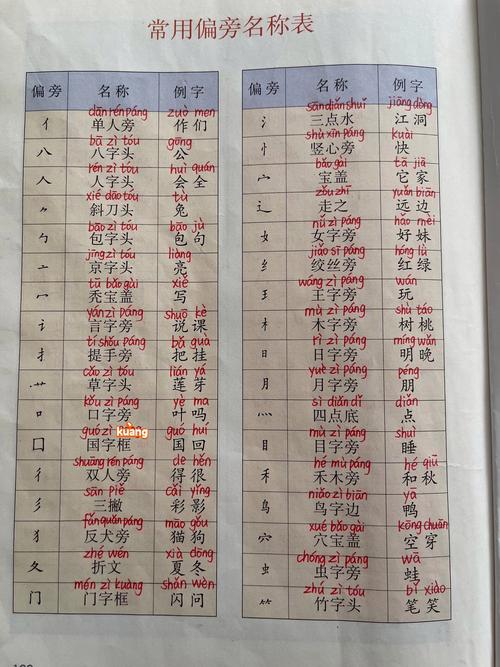 常用偏旁名称表
偏旁 名称 例字
dān rén páng zuò men
亻 单人旁 作们
bā zì tóu gōng
八 八字头 公
rén zì tóu huì quán
人 人字头 会全
xié dāo tóu tù
⺈ 斜刀头 兔
bāo zì tóu bāo jù
勹 包字头 包句
jīng zì tóu liàng
亠 京字头 亮
tū bǎo gài xiě
冖 秃宝盖 写
yán zì páng shuō kè
讠 言字旁 说课
tí shǒu páng bǎ guà
扌 提手旁 把挂
cǎo zì tóu lián yá
艹 草字头 莲芽
kǒu zì páng yè ma
口 口字旁 叶吗
guó zì kuàng guó huí
囗 国字框 国回
shuāng rén páng de hěn
彳 双人旁 得很
sān piě cǎi yǐng
彡 三撇 彩影
fǎn quǎn páng māo gǒu
犭 反犬旁 猫狗
zhé wén xià dōng
夂 折文 夏冬
mén zì kuàng shǎn wèn
门 门字框 闪问
偏旁 名称 例字
sān diǎn shuǐ jiāng dòng
氵 三点水 江洞
shù xīn páng kuài
忄 竖心旁 快
bǎo gài tā jiā
宀 宝盖 它家
zǒu zhī yuǎn biān
辶 走之 远边
nǚ zì páng hǎo mèi
女 女字旁 好妹
jiǎo sī páng hóng lǜ
纟 绞丝旁 红绿
wáng zì páng wán
王 王字旁 玩
mù zì páng shù táo
木 木字旁 树桃
rì zì páng míng wǎn
日 日字旁 明晚
yuè zì páng péng
月 月字旁 朋
sì diǎn dǐ diǎn
灬 四点底 点
mù zì páng shuì
目 目字旁 睡
hé mù páng hé qiū
禾 禾木旁 和秋
niǎo zì biān yā
鸟 鸟字边 鸭
xué bǎo gài kōng chuān
穴 穴宝盖 空穿
chóng zì páng wā
虫 虫字旁 蛙
zhú zì tóu bǐ xiào
⺮ 竹字头 笔笑